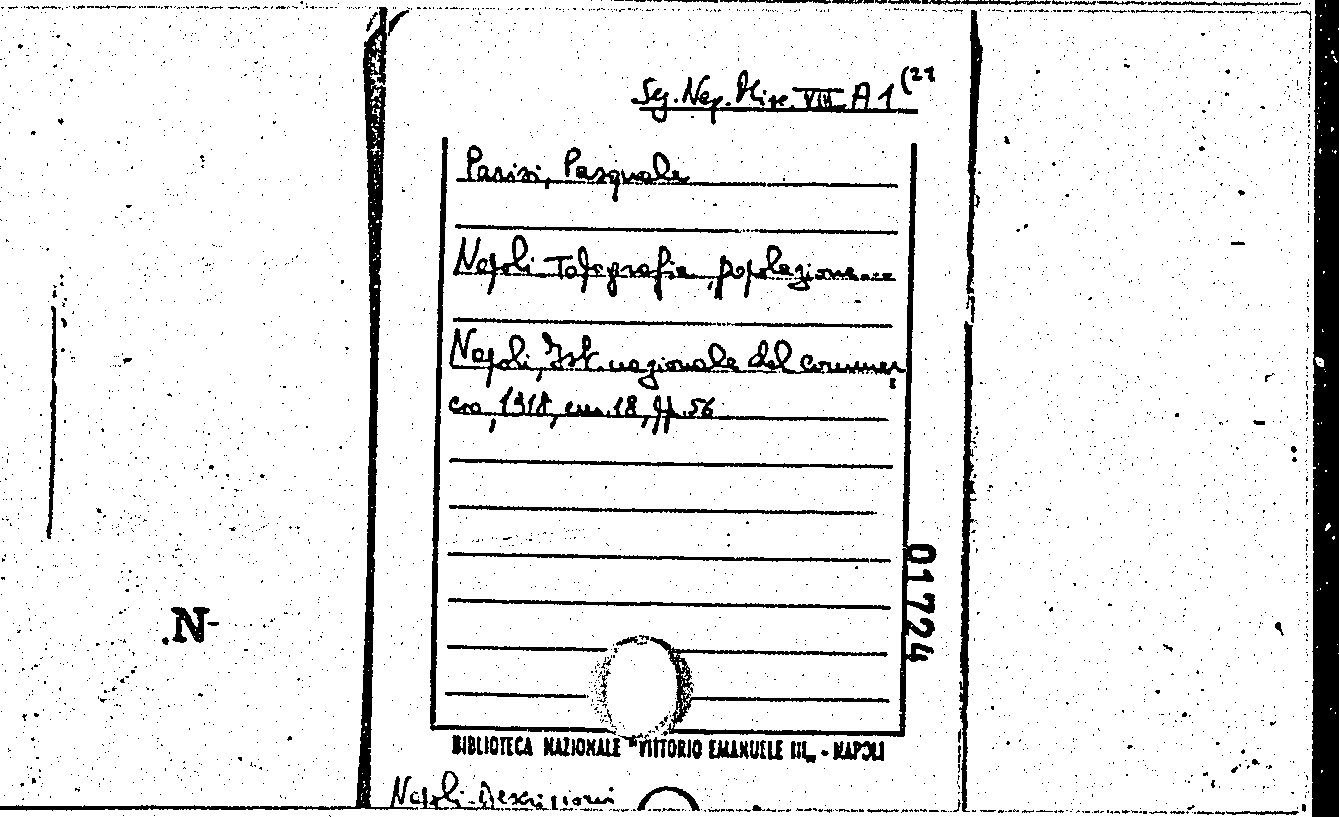 Sez. Nap. Misc. VIII A 1 (21
Parisi, Pasquale
Napoli. Topografia, popolazione...
Napoli, Ist. nazionale del commer
cio, 1918, cm. 18, pp. 56
01724
.N-
BIBLIOTECA NAZIONALE "VITTORIO EMANUELE III„ - NAPOLI
Napoli-Descrizioni